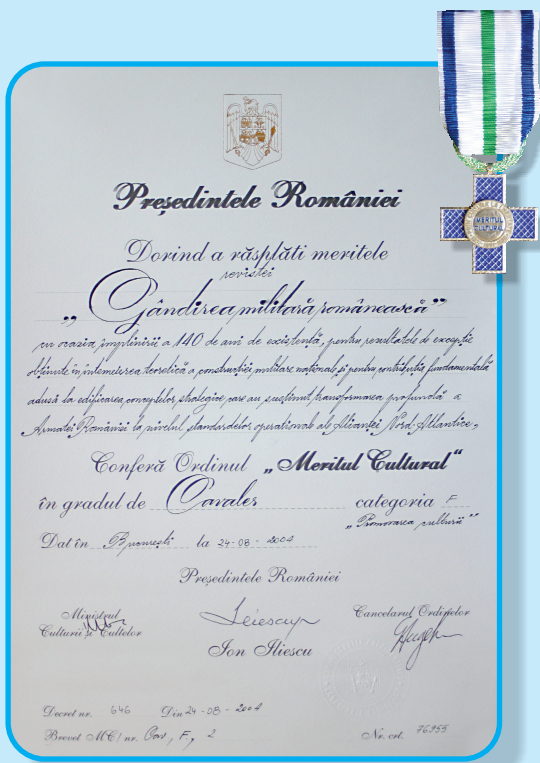 MERITUL
CULTURAL
Președintele României
Dorind a răsplăti meritele
revistei
„Gândirea militară românească”
cu ocazia împlinirii a 140 de ani de existență, pentru rezultatele de excepție
obținute în întemeierea teoretică a construcției militare naționale și pentru contribuția fundamentală
adusă la edificarea conceptelor strategice care au susținut transformarea profundă a
Armatei României la nivelul standardelor operaționale ale Alianței Nord-Atlantice,
Conferă Ordinul „Meritul Cultural“
în gradul de Cavaler categoria F
„Promovarea culturii”
Dat în București la 24-08-2004
Președintele României
Ministrul Cancelarul Ordinelor
Culturii și Cultelor
Ion Iliescu
Decret nr. 646 Din 24-08-2004
Brevet MC/ nr. Cav., F, 2 Nr. crt. 76955